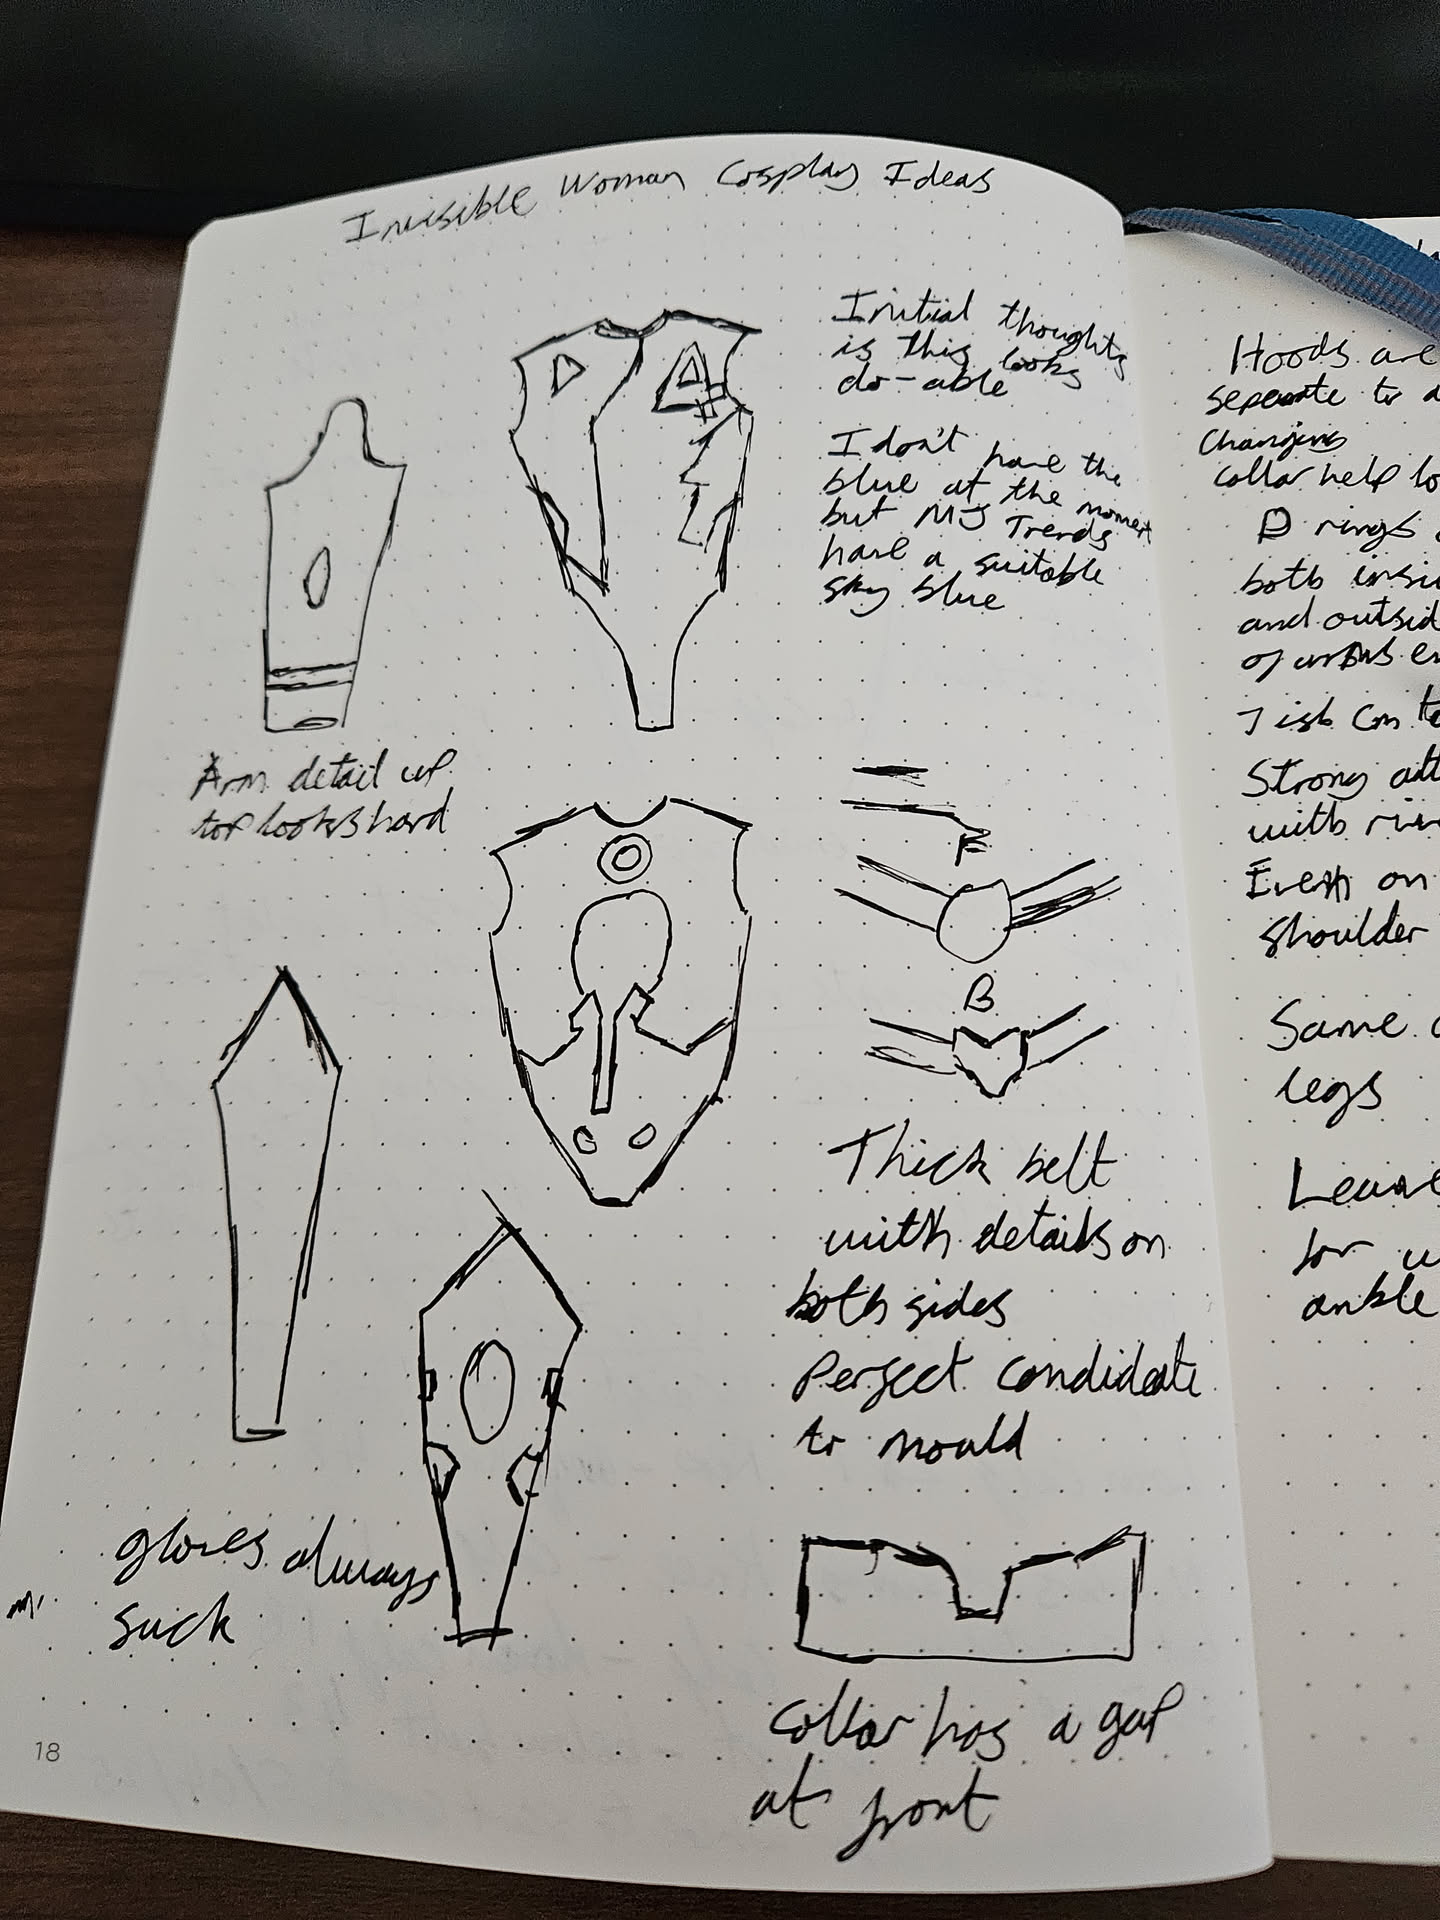 Invisible Woman Cosplay Ideas
Initial thoughts
is this looks
do-able
I don't have the
blue at the moment
but MJ Trends
have a suitable
sky blue
Arm detail up
top looks hard
F
B
Thick belt
with details on
both sides
Perfect candidate
to mould
gloves always
suck
Collar has a gap
at front
18
Hoods are
seperate to
Changing
collar help
D rings
both
and
of
Strong
with
Even on
shoulder
Same
legs
Leave
for
ankle